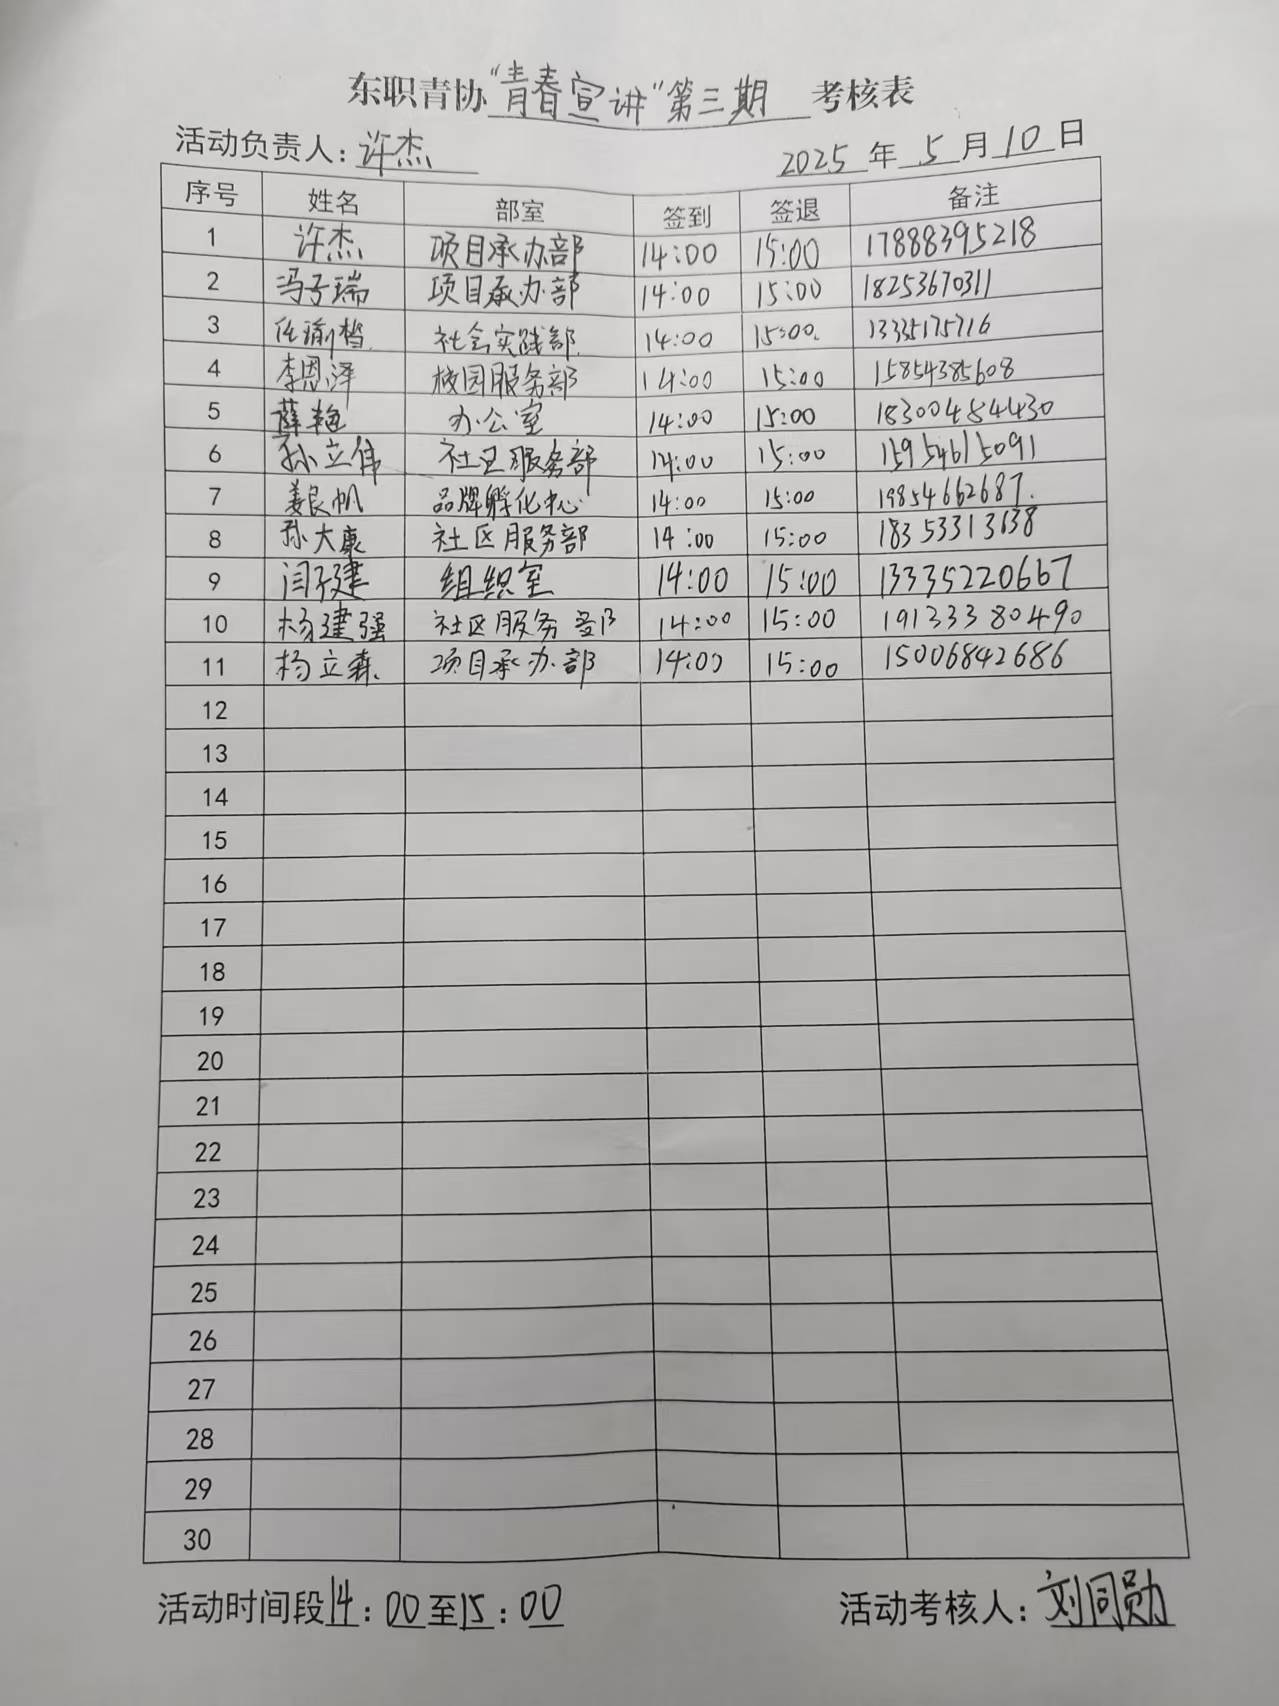 东职青协“青春宣讲”第三期 考核表
活动负责人：许杰 2025 年 5 月 10 日
序号 姓名 部室 签到 签退 备注
1 许杰 项目承办部 14:00 15:00 17888395218
2 冯子瑞 项目承办部 14:00 15:00 18253670311
3 社会实践部 14:00 15:00 13335175716
4 李恩泽 校园服务部 14:00 15:00 15854385608
5 薛艳 办公室 14:00 15:00 18300484430
6 孙立伟 社区服务部 14:00 15:00 15954615091
7 姜良帆 品牌孵化中心 14:00 15:00 19854662687
8 孙大康 社区服务部 14:00 15:00 18353313638
9 闫子建 组织室 14:00 15:00 13335220667
10 杨建强 社区服务部 14:00 15:00 19133380490
11 杨立森 项目承办部 14:00 15:00 15006842686
12
13
14
15
16
17
18
19
20
21
22
23
24
25
26
27
28
29
30
活动时间段14：00至15：00 活动考核人：刘同勋